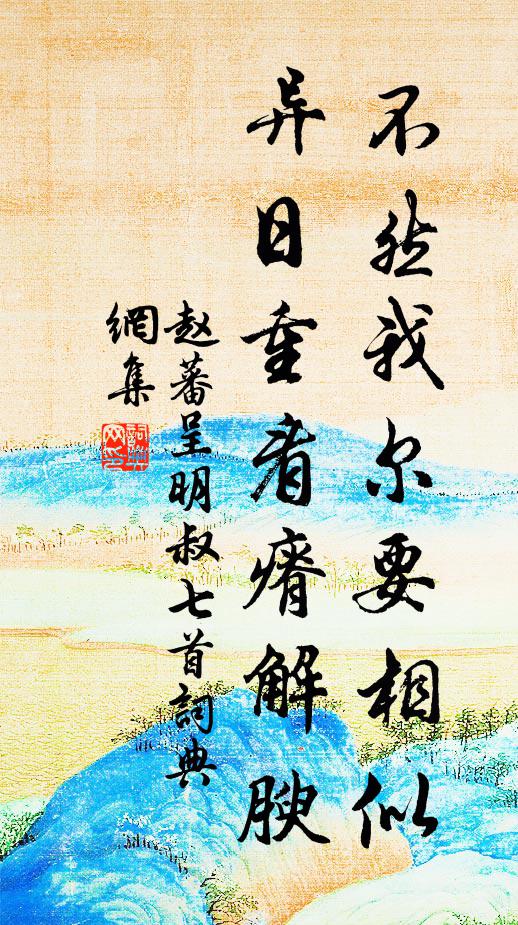 不然我尔要相似
异日重看瘠解腴
赵蕃呈明叔七首词典
网集